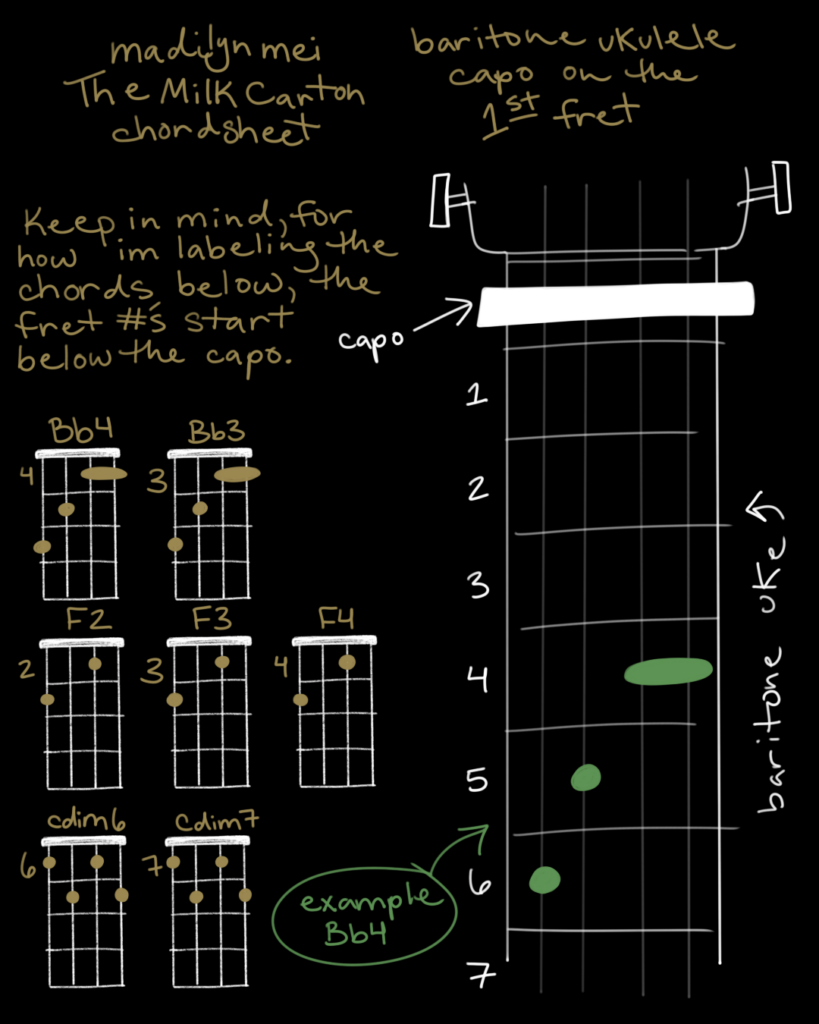 madilyn mei
The Milk Carton
chordsheet
baritone ukulele
capo on the
1st fret
Keep in mind, for
how im labeling the
chords below, the
fret #'s start
below the capo.
capo
1
2
3
4
5
6
7
baritone uke
Bb4
4
Bb3
3
F2
2
F3
3
F4
4
cdim6
6
Cdim7
7
example
Bb4